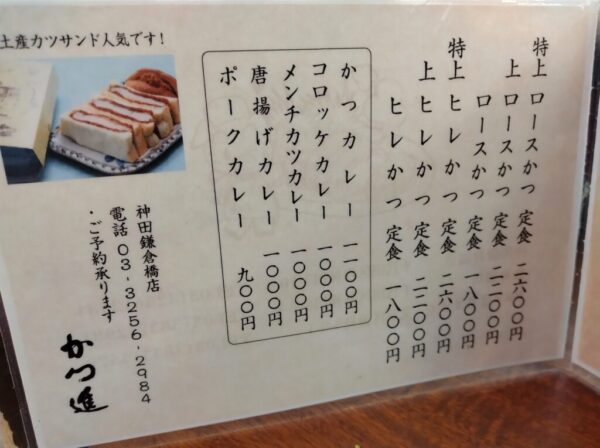 特上 ロースかつ 定食 二六〇〇円
上 ロースかつ 定食 二二〇〇円
ロースかつ 定食 一八〇〇円
特上 ヒレかつ 定食 二六〇〇円
上 ヒレかつ 定食 二二〇〇円
ヒレかつ 定食 一八〇〇円
かつカレー 一一〇〇円
コロッケカレー 一〇〇〇円
メンチカツカレー 一〇〇〇円
唐揚げカレー 一〇〇〇円
ポークカレー 九〇〇円
土産カツサンド人気です!
神田鎌倉橋店
電話 03-3256-2984
・ご予約承ります
かつ進